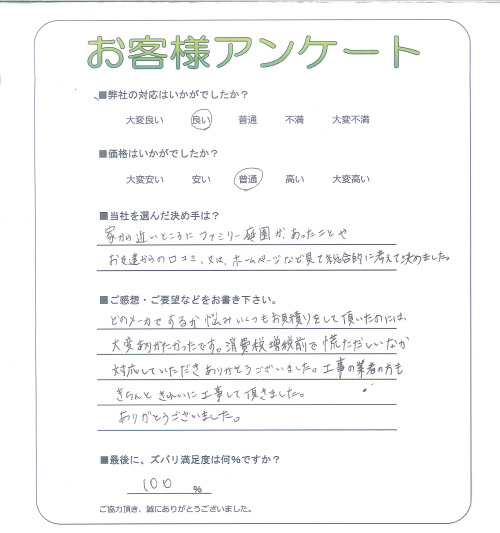 お客様アンケート
■弊社の対応はいかがでしたか？
大変良い 良い 普通 不満 大変不満
■価格はいかがでしたか？
大変安い 安い 普通 高い 大変高い
■当社を選んだ決め手は？
家から近いところにファミリー庭園が、あったことや
お友達からの口コミ、又は、ホームページなど見て総合的に考えて決めました。
■ご感想・ご要望などをお書き下さい。
どのメーカでするか悩みいくつもお見積りをして頂いたのには、
大変ありがたかったです。消費税増税前で慌ただしいなか
対応していただきありがとうございました。工事の業者の方も
きちんときれいに工事して頂きました。
ありがとうございました。
■最後に、ズバリ満足度は何%ですか？
100 %
ご協力頂き、誠にありがとうございました。